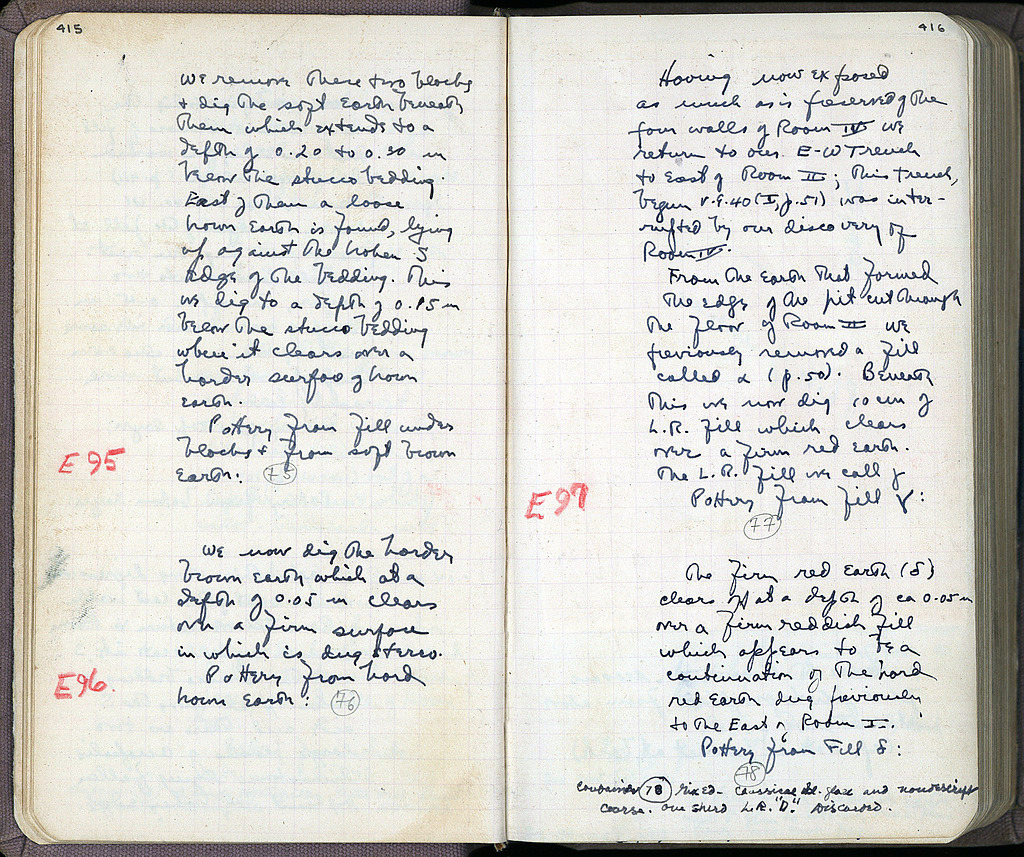 415
We remove these two blocks
& dig the soft earth beneath
them which extends to a
depth of 0.20 to 0.30 m
below the stucco bedding.
East of them a loose
brown earth is found, lying
up against the broken S
edge of the bedding. This
we dig to a depth of 0.15 m
below the stucco bedding
where it clears over a
harder surface of brown
earth.
Pottery from fill under
blocks & from soft brown
E95
earth. 75
We now dig the harder
brown earth which at a
depth of 0.05 m clears
over a firm surface
in which is dug stereo.
E96.
Pottery from hard
brown earth: 76
416
Having now exposed
as much as is preserved of the
four walls of Room IV we
return to our E-W Trench
to East of Room II; this trench,
begun V.E.40 (I, p.51) was inter-
rupted by our discovery of
Room IV.
From the earth that formed
the edge of the pit cut through
the floor of Room II we
previously removed a fill
called α (p.50). Beneath
this we now dig 10 cm of
L.R. fill which clears
over a firm red earth.
The L.R. fill we call γ
E97
Pottery from fill γ:
77
The firm red earth (δ)
clears off at a depth of ca 0.05 m
over a firm reddish fill
which appears to be a
continuation of the hard
red earth dug previously
to the East of Room I.
Pottery from Fill δ:
78
78 Mixed - Classical bl. glaze and nondescript
coarse. One sherd L.R. "D." Discarded.